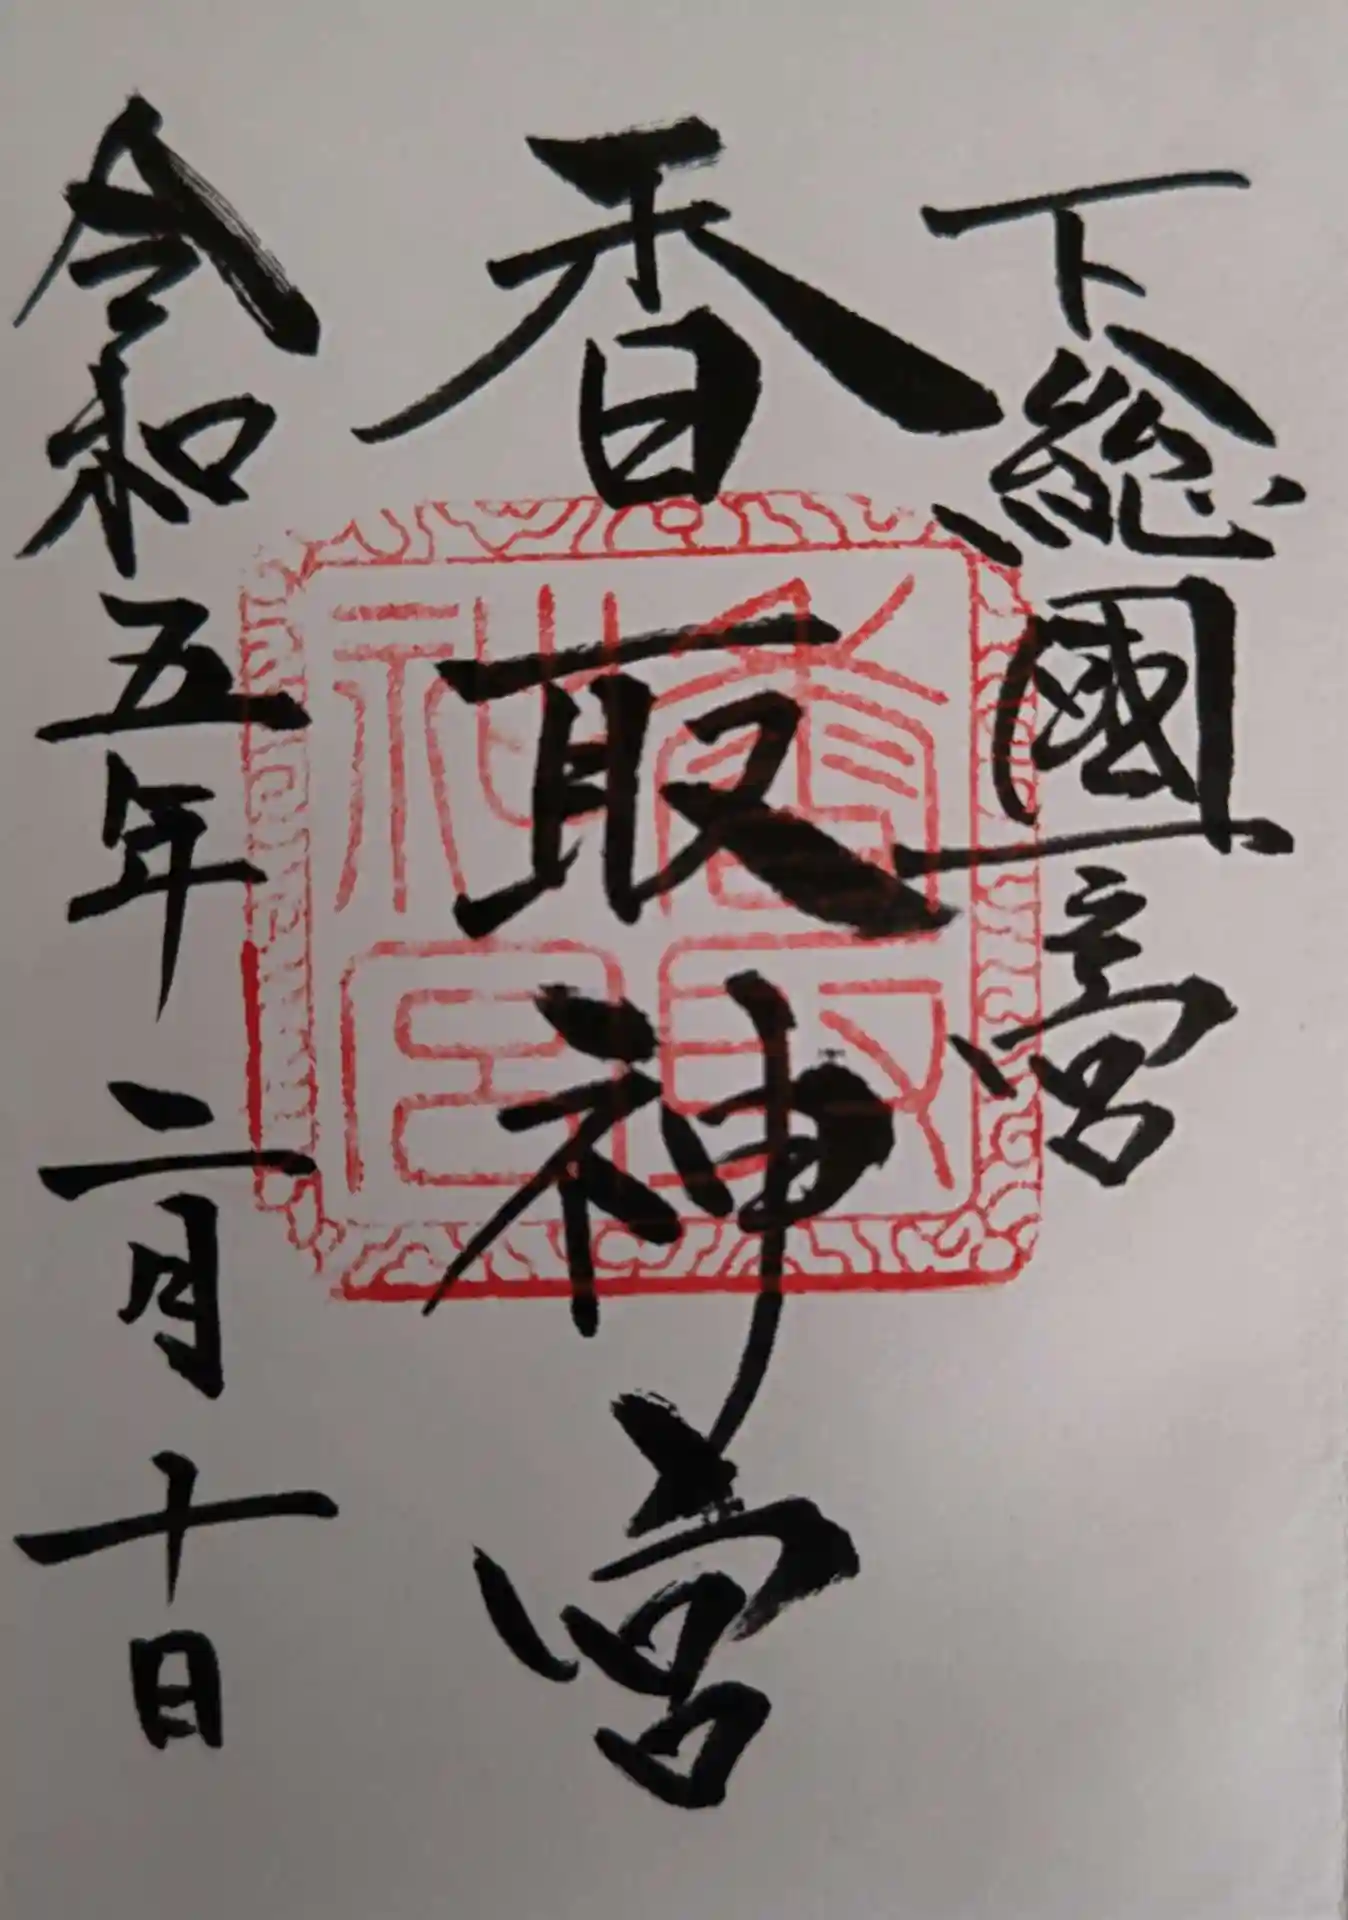 下総國一之宮
香取神宮
令和五年二月十日
香取
神宮